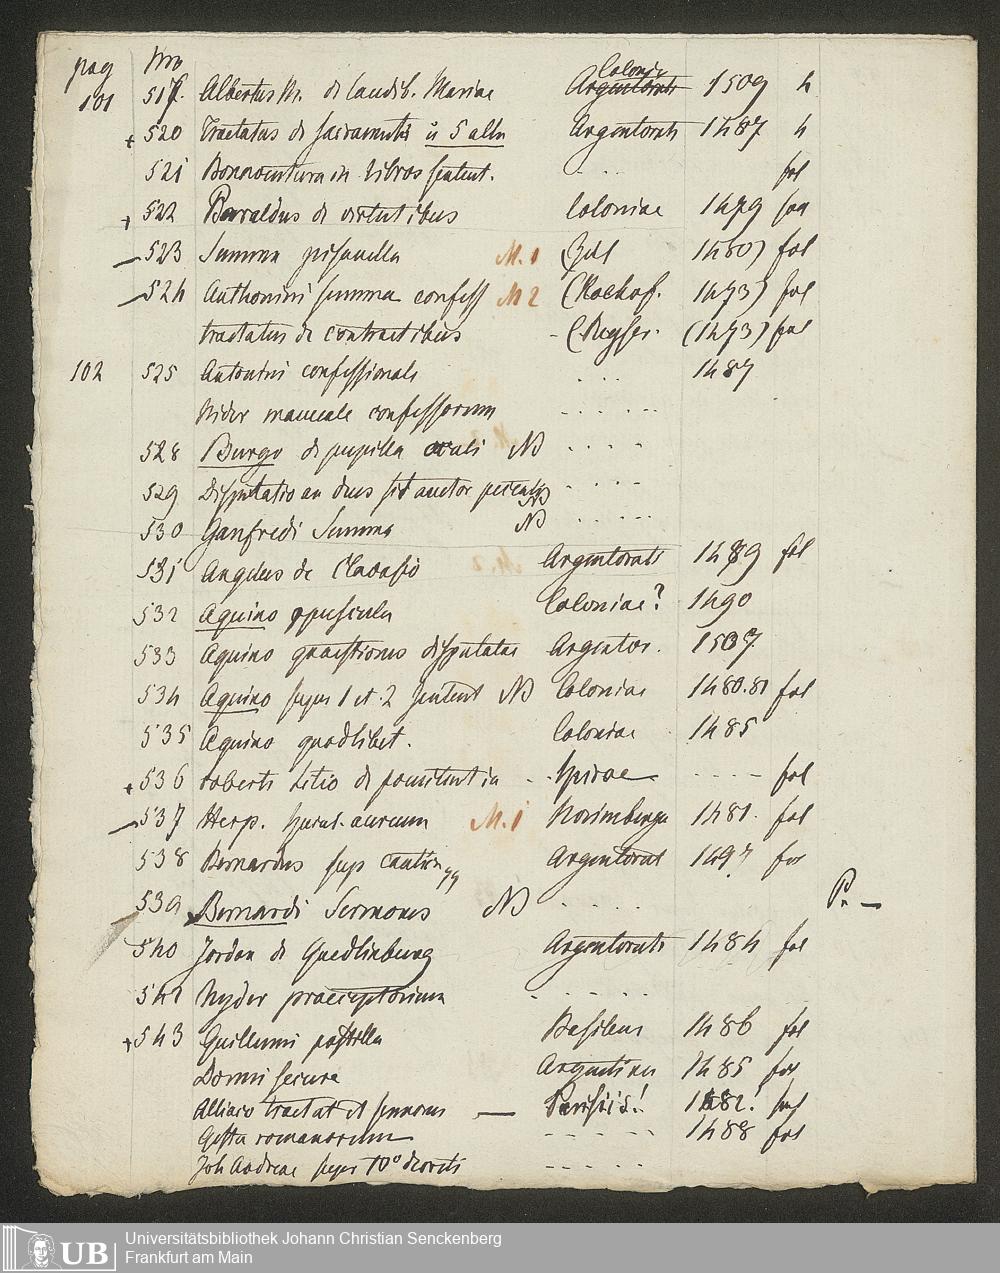 pag Nro
101 517. Albertus M. de laudib. Mariae Argentorati Coloniae 1509 4
+ 520 Tractatus de sacramentis u 5 alln Argentorati 1487 4
521 Bonaventura in libros sentent. . . . fol
+ 522 Peraldus de virtutibus Coloniae 1479 fol
523 Summa pisanella M. 1 (Zell 1480) fol
524 Anthonini summa confess M 2 (Koelhof. 1473) fol
tractatus de contractibus - (Ruysser. (1473) fol
102 525 Antonini confessionale . . . . 1487
Nider manuale confessorum . . . . . .
528 Burgo de pupilla oculi NB . . . .
529 Disputatio an deus sit auctor peccati NB . . . .
530 Ganfredi Summa NB . . . . .
531 Angelus de Clavasio Argentorati 1489 fol
532 Aquino opuscula Coloniae? 1490
533 Aquino quaestiones disputatae Argentor. 1507.
534 Aquino super 1 et 2 sentent NB Coloniae 1480.81 fol
535 Aquino quodlibet. Coloniae 1485
+ 536 roberti Litio de poenitentia - Spirae - - - - fol
537 Herp. specul. aureum M. 1 Norimbergae 1481. fol
538 Bernardus sup cantica Argentorat 1497 fol
539 Bernardi Sermones NB . . . . . P. —
540 Jordan de Quedlinburg Argentorati 1484 fol
542 Nyder praeceptorium . . . . . .
+ 543 Guillermi postilla Basileae 1486 fol
Dormi secure Argentinae 1485 fol
Alliaco tractat et sermones — Parisiis! 1482! fol
Gesta romanorum - - - - - - 1488 fol
Joh Andreae super 10º decreti - - - . . .
UB
Universitätsbibliothek Johann Christian Senckenberg
Frankfurt am Main